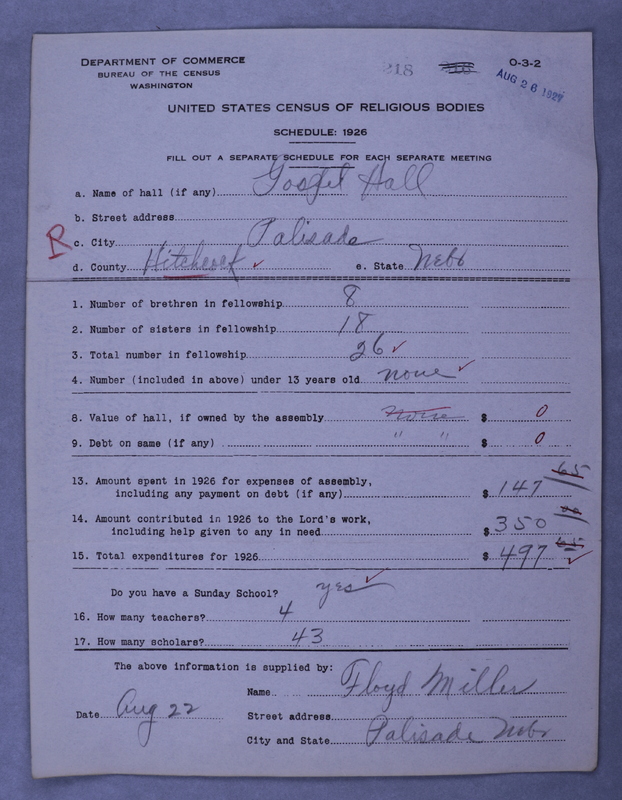 DEPARTMENT OF COMMERCE
BUREAU OF THE CENSUS
WASHINGTON
218
O-3-2
AUG 26 1927
UNITED STATES CENSUS OF RELIGIOUS BODIES
SCHEDULE: 1926
FILL OUT A SEPARATE SCHEDULE FOR EACH SEPARATE MEETING
a. Name of hall (if any) Gospel Hall
b. Street address
R
c. City Palisade
d. County Hitchcock ✓ e. State Nebr
1. Number of brethren in fellowship 8
2. Number of sisters in fellowship 18
3. Total number in fellowship 26 ✓
4. Number (included in above) under 13 years old none ✓
8. Value of hall, if owned by the assembly none $ 0
9. Debt on same (if any) " " $ 0
13. Amount spent in 1926 for expenses of assembly,
including any payment on debt (if any) $ 147 65
14. Amount contributed in 1926 to the Lord's work,
including help given to any in need $ 350 00
15. Total expenditures for 1926 $ 497 65 ✓
Do you have a Sunday School? yes ✓
16. How many teachers? 4
17. How many scholars? 43
The above information is supplied by:
Name Floyd Miller
Date Aug 22 Street address
City and State Palisade Nebr